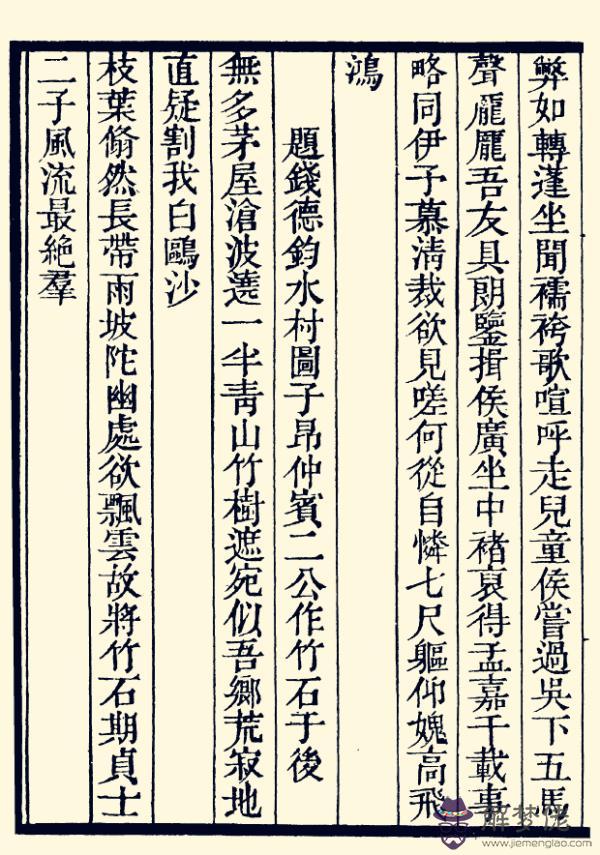 弊如轉蓬坐聞襦袴歌喧呼走兒童侯嘗過吳下五馬
聲龎龎吾友具朗鑒揖侯廣坐中褚裒得孟嘉千載事
略同伊予慕淸裁欲見嗟何從自憐七尺軀仰媿高飛
鴻
題錢德鈞水村圖子昂仲賓二公作竹石于後
無多茅屋滄波遶一半靑山竹樹遮宛似吾鄉荒寂地
直疑割我白鷗沙
枝葉翛然長帶雨坡陀幽處欲飄雲故將竹石期貞士
二子風流最絕羣
解梦佬
www.jiemenglao.com